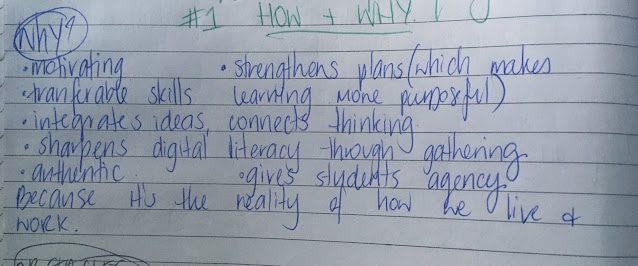 #1 HOW + WHY
Why?
• motivating • strengthens plans (which makes
• tranferable skills learning more purposful)
• integrates ideas, connects thinking
• sharpens digital literacy through gathering
• authentic • gives students agency
Because it's the reality of how we live &
work.